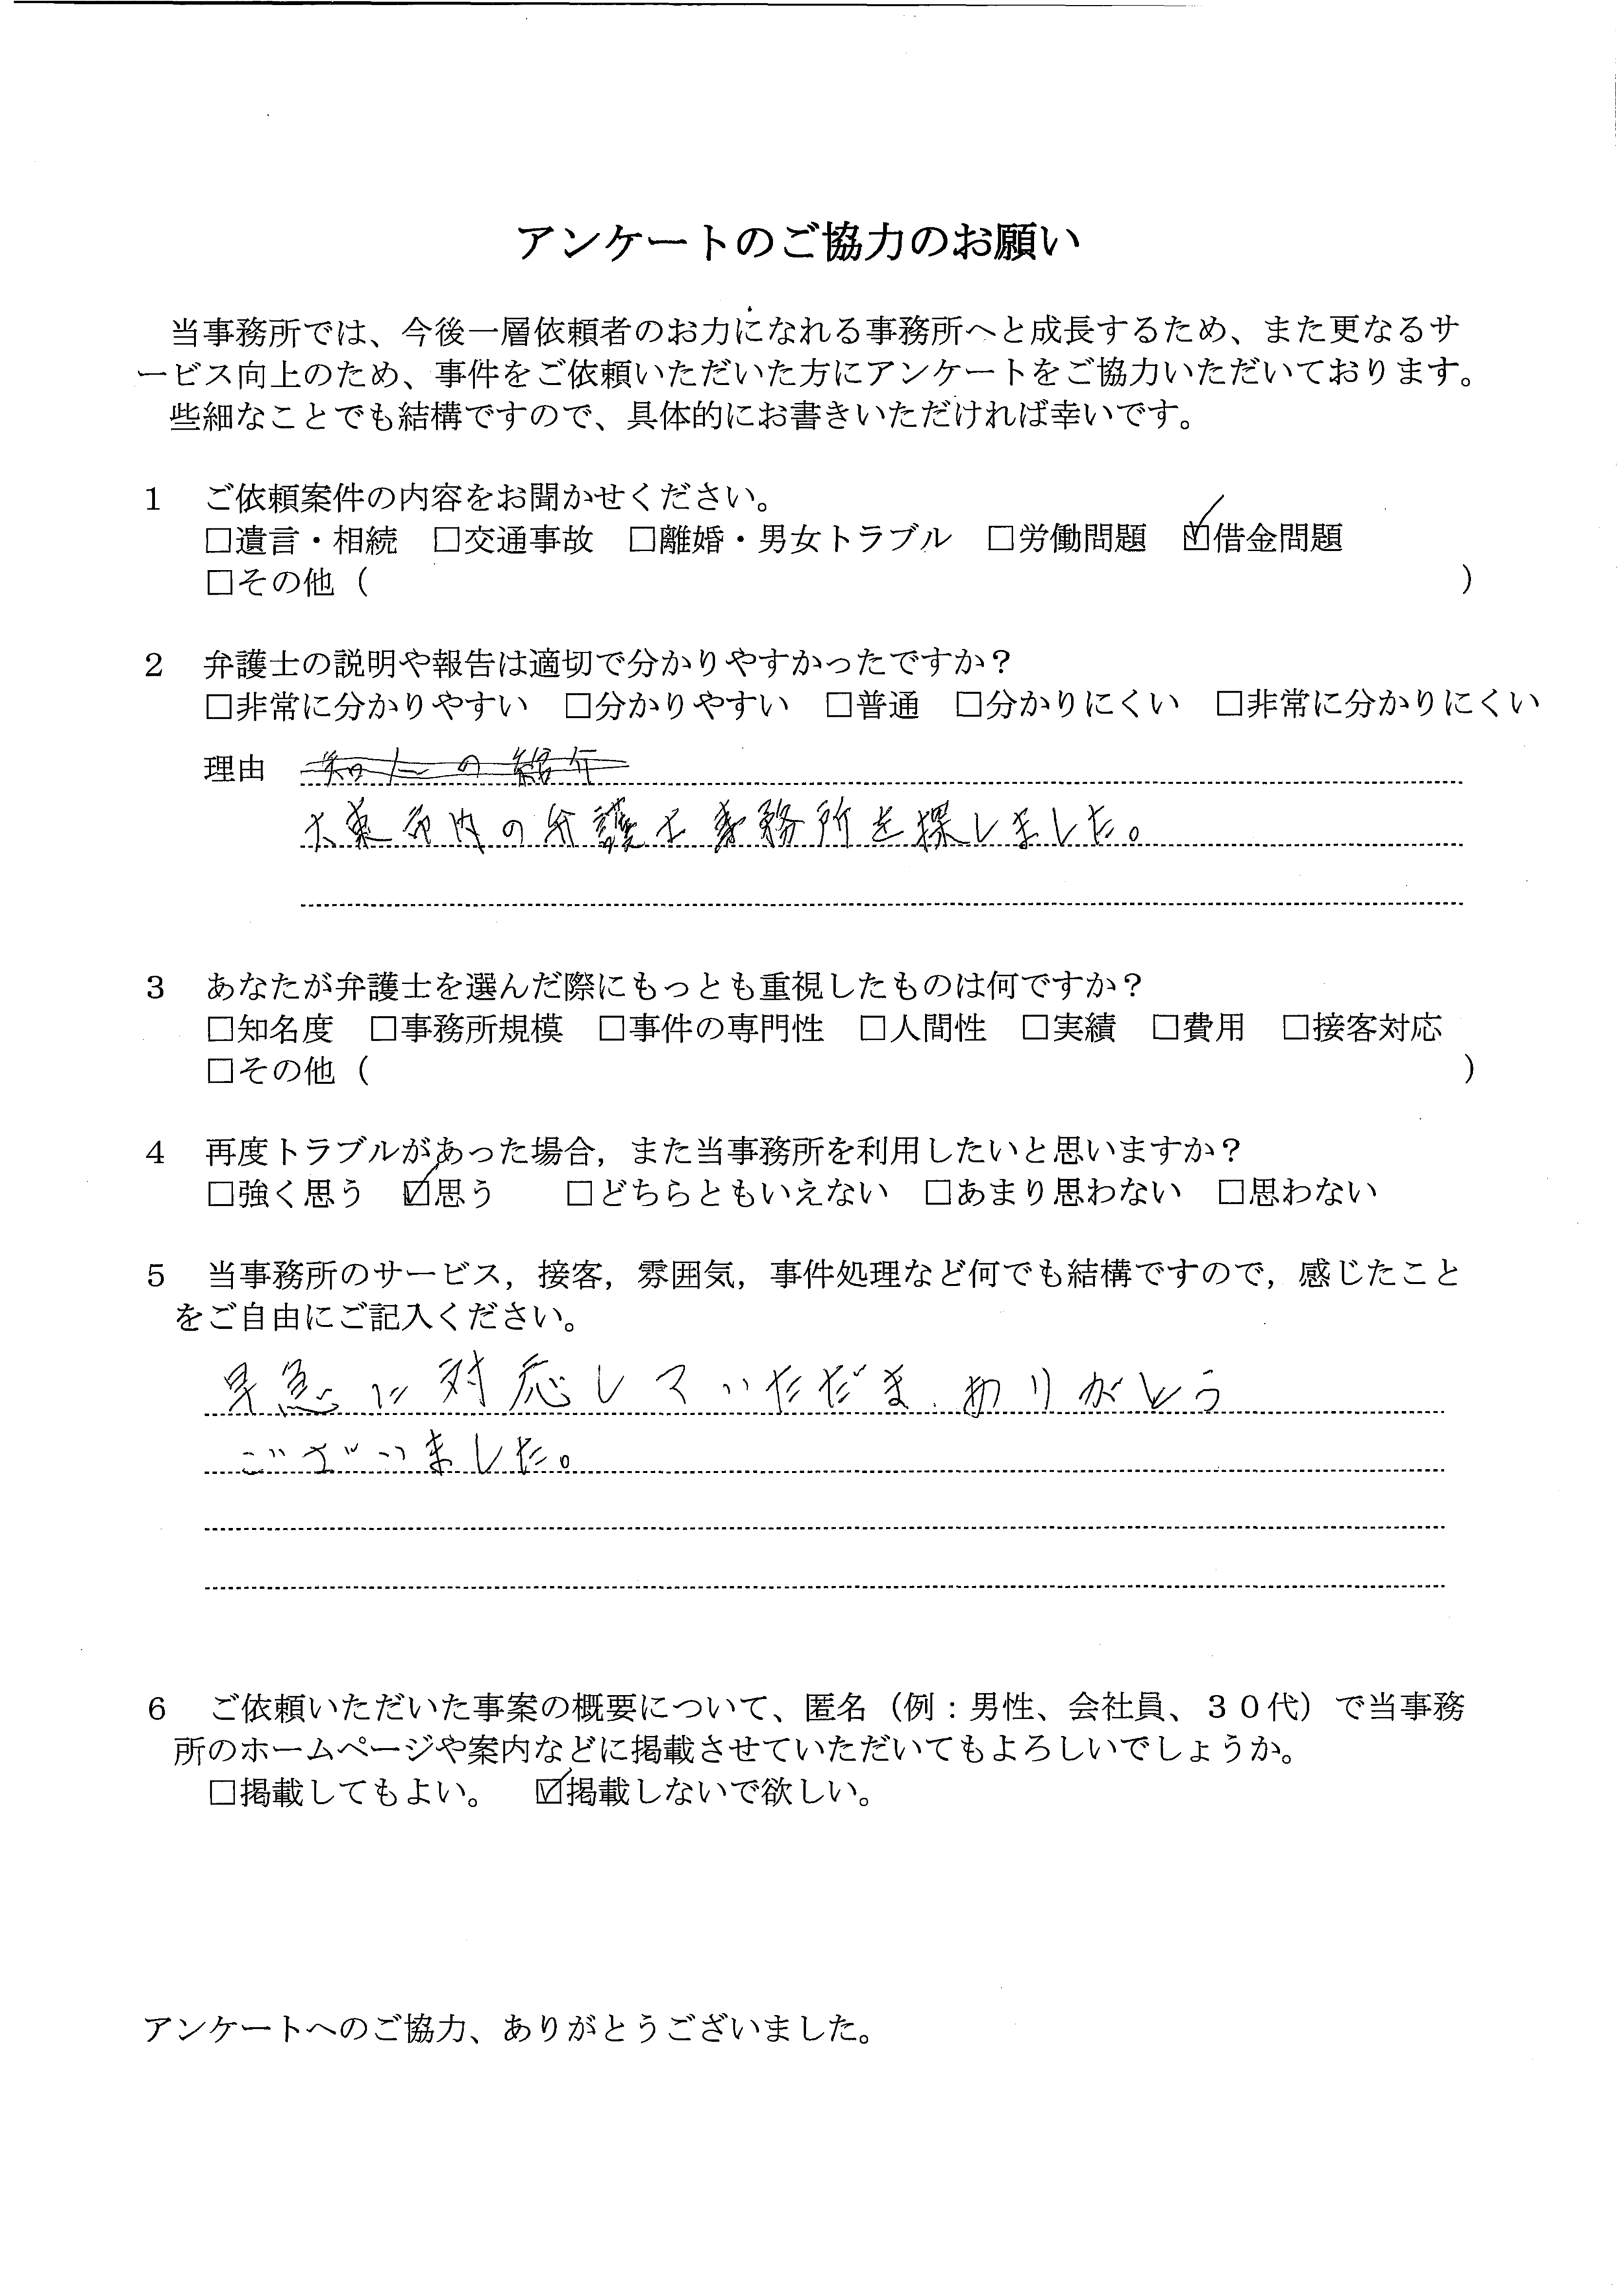 アンケートのご協力のお願い
当事務所では、今後一層依頼者のお力になれる事務所へと成長するため、また更なるサ
ービス向上のため、事件をご依頼いただいた方にアンケートをご協力いただいております。
些細なことでも結構ですので、具体的にお書きいただければ幸いです。
1 ご依頼案件の内容をお聞かせください。
□遺言・相続 □交通事故 □離婚・男女トラブル □労働問題 ☑借金問題
□その他（ ）
2 弁護士の説明や報告は適切で分かりやすかったですか？
□非常に分かりやすい □分かりやすい □普通 □分かりにくい □非常に分かりにくい
理由 知人の紹介
大東市内の弁護士事務所を探しました。
3 あなたが弁護士を選んだ際にもっとも重視したものは何ですか？
□知名度 □事務所規模 □事件の専門性 □人間性 □実績 □費用 □接客対応
□その他（ ）
4 再度トラブルがあった場合，また当事務所を利用したいと思いますか？
□強く思う ☑思う □どちらともいえない □あまり思わない □思わない
5 当事務所のサービス，接客，雰囲気，事件処理など何でも結構ですので，感じたこと
をご自由にご記入ください。
早急に対応していただま、ありがとう
ございました。
6 ご依頼いただいた事案の概要について、匿名（例：男性、会社員、３０代）で当事務
所のホームページや案内などに掲載させていただいてもよろしいでしょうか。
□掲載してもよい。 ☑掲載しないで欲しい。
アンケートへのご協力、ありがとうございました。